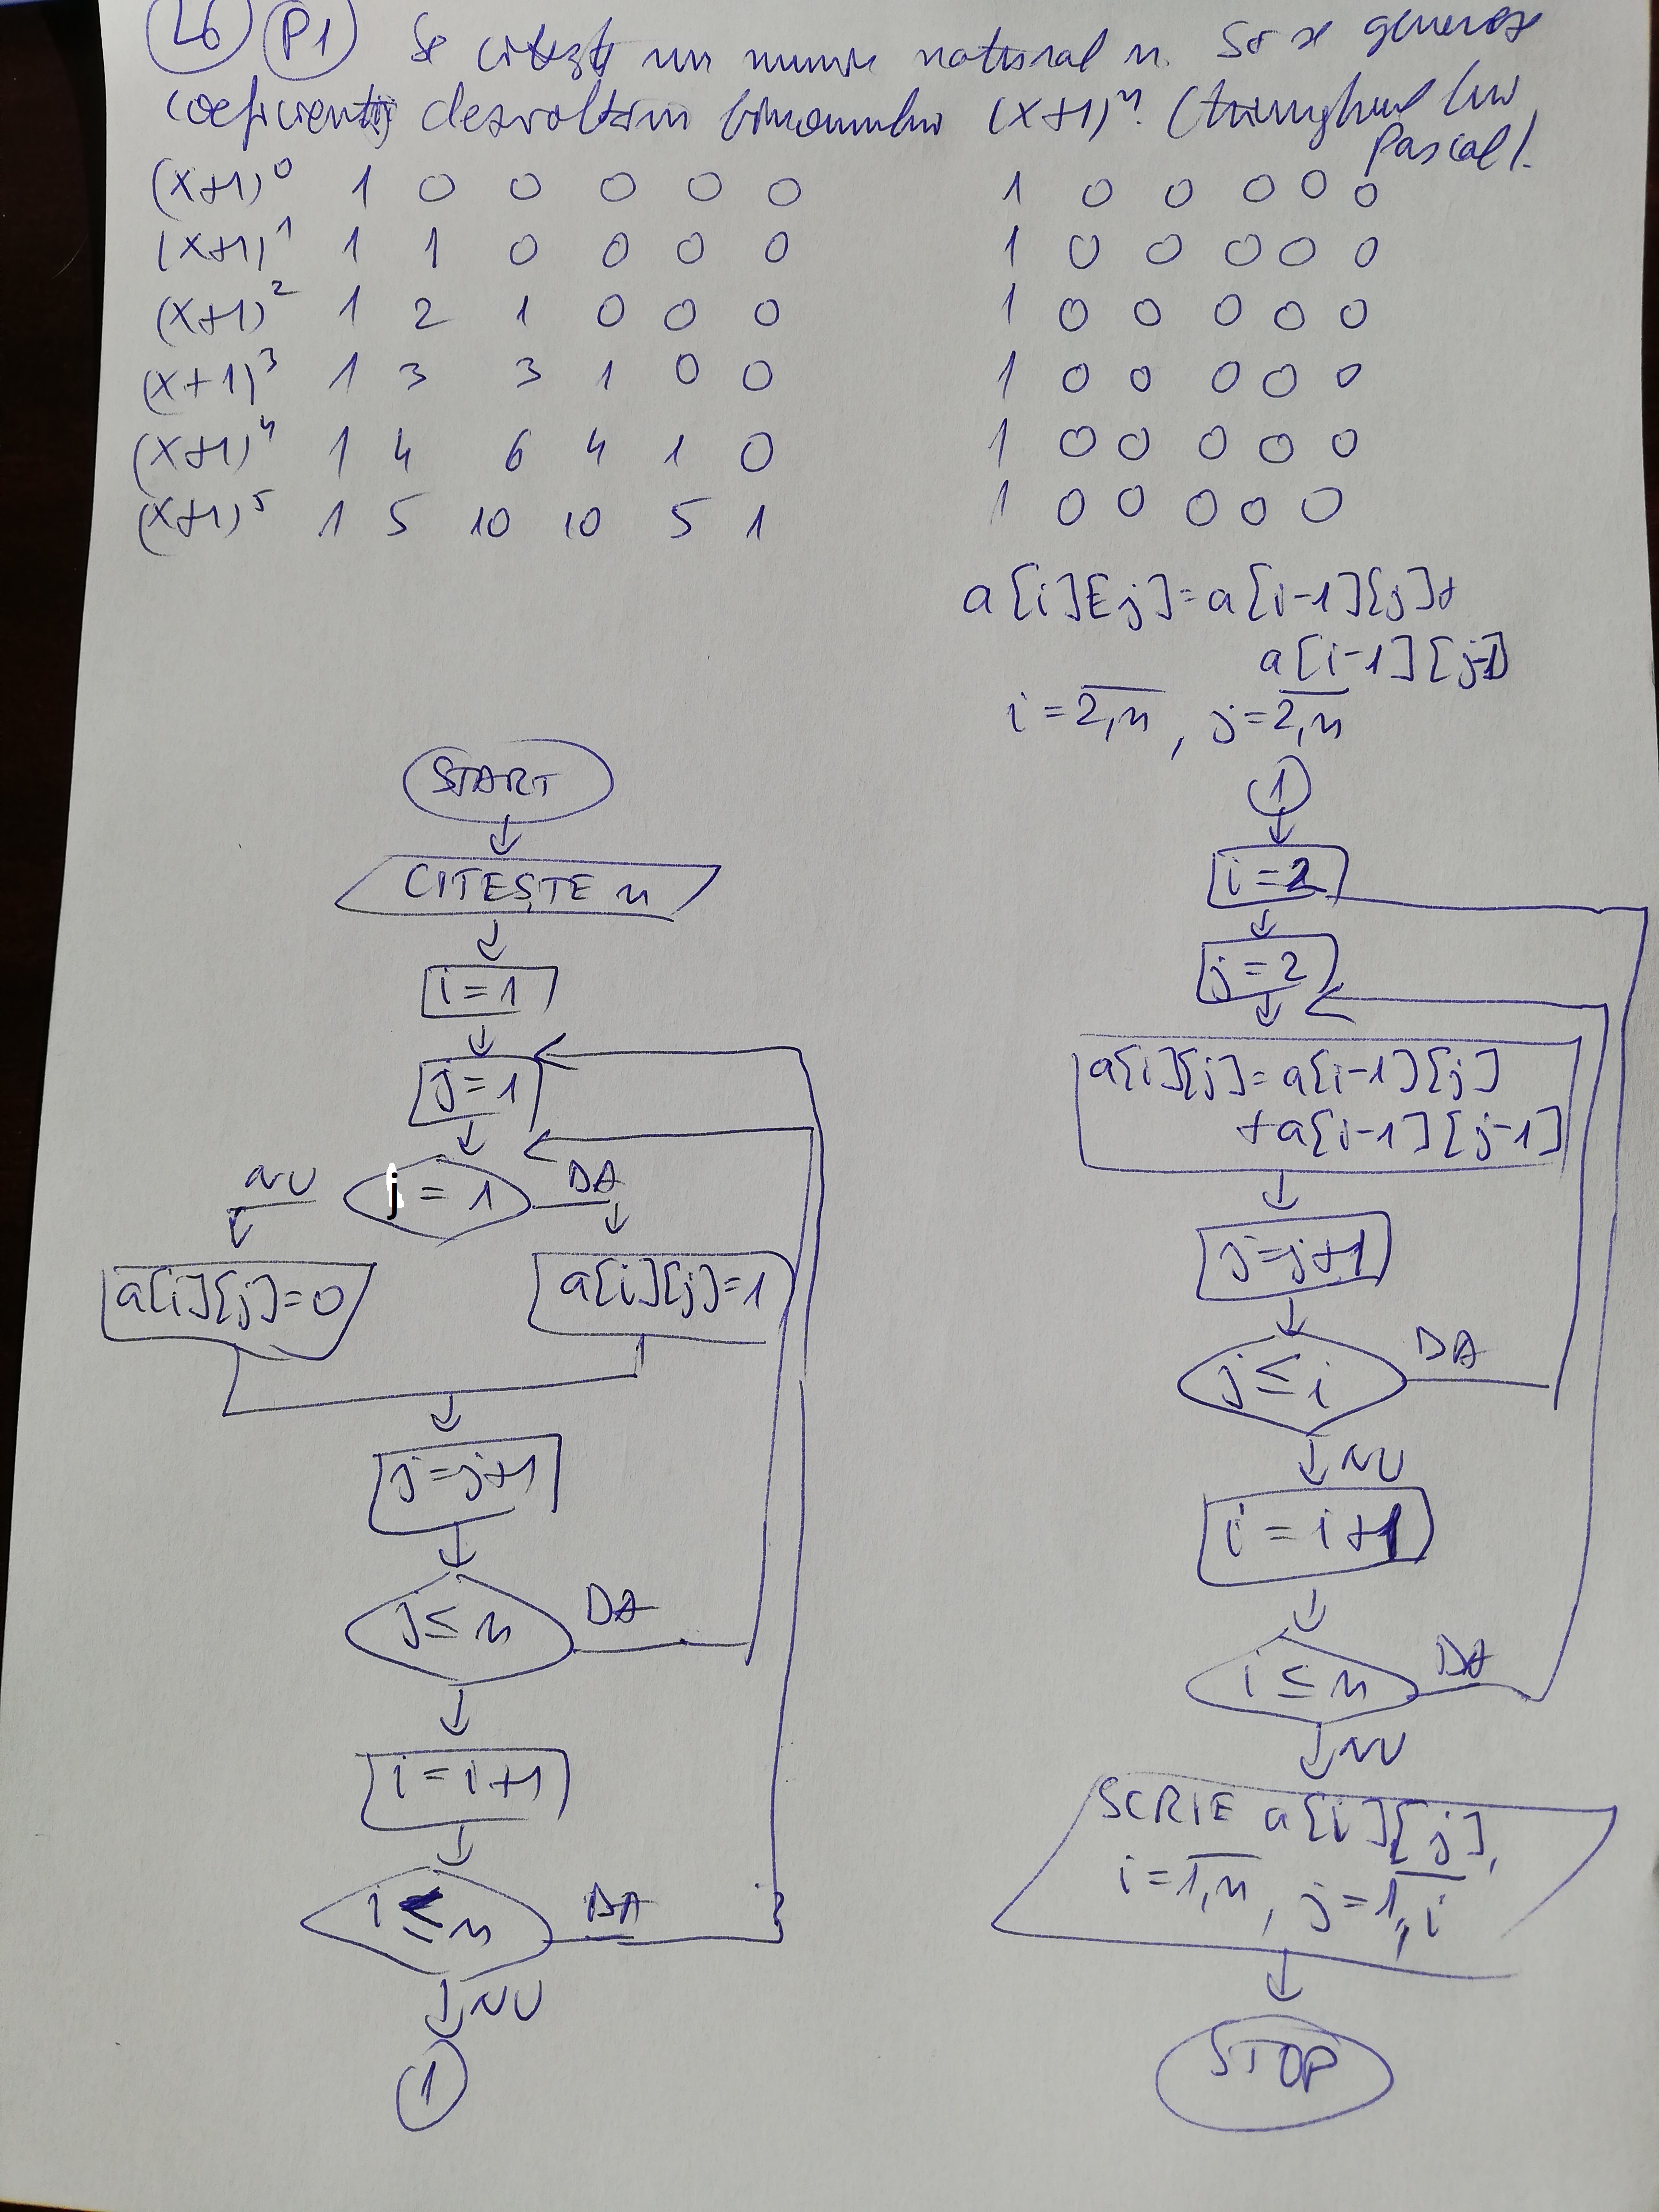 26 P1 Se citește un număr natural n. Să se genereze
coeficienții dezvoltării binomului (x+1)^n. (triunghiul lui
Pascal).
(x+1)^0 1 0 0 0 0 0
(x+1)^1 1 1 0 0 0 0
(x+1)^2 1 2 1 0 0 0
(x+1)^3 1 3 3 1 0 0
(x+1)^4 1 4 6 4 1 0
(x+1)^5 1 5 10 10 5 1
1 0 0 0 0 0
1 0 0 0 0 0
1 0 0 0 0 0
1 0 0 0 0 0
1 0 0 0 0 0
1 0 0 0 0 0
a[i][j]=a[i-1][j]+
a[i-1][j-1]
i=2,n, j=2,n
START
CITEȘTE n
i=1
j=1
NU j=1 DA
a[i][j]=0 a[i][j]=1
j=j+1
j≤n DA
i=i+1
i≤n DA
NU
1
1
i=2
j=2
a[i][j]=a[i-1][j]
+a[i-1][j-1]
j=j+1
j≤i DA
NU
i=i+1
i≤n DA
NU
SCRIE a[i][j],
i=1,n, j=1,i
STOP